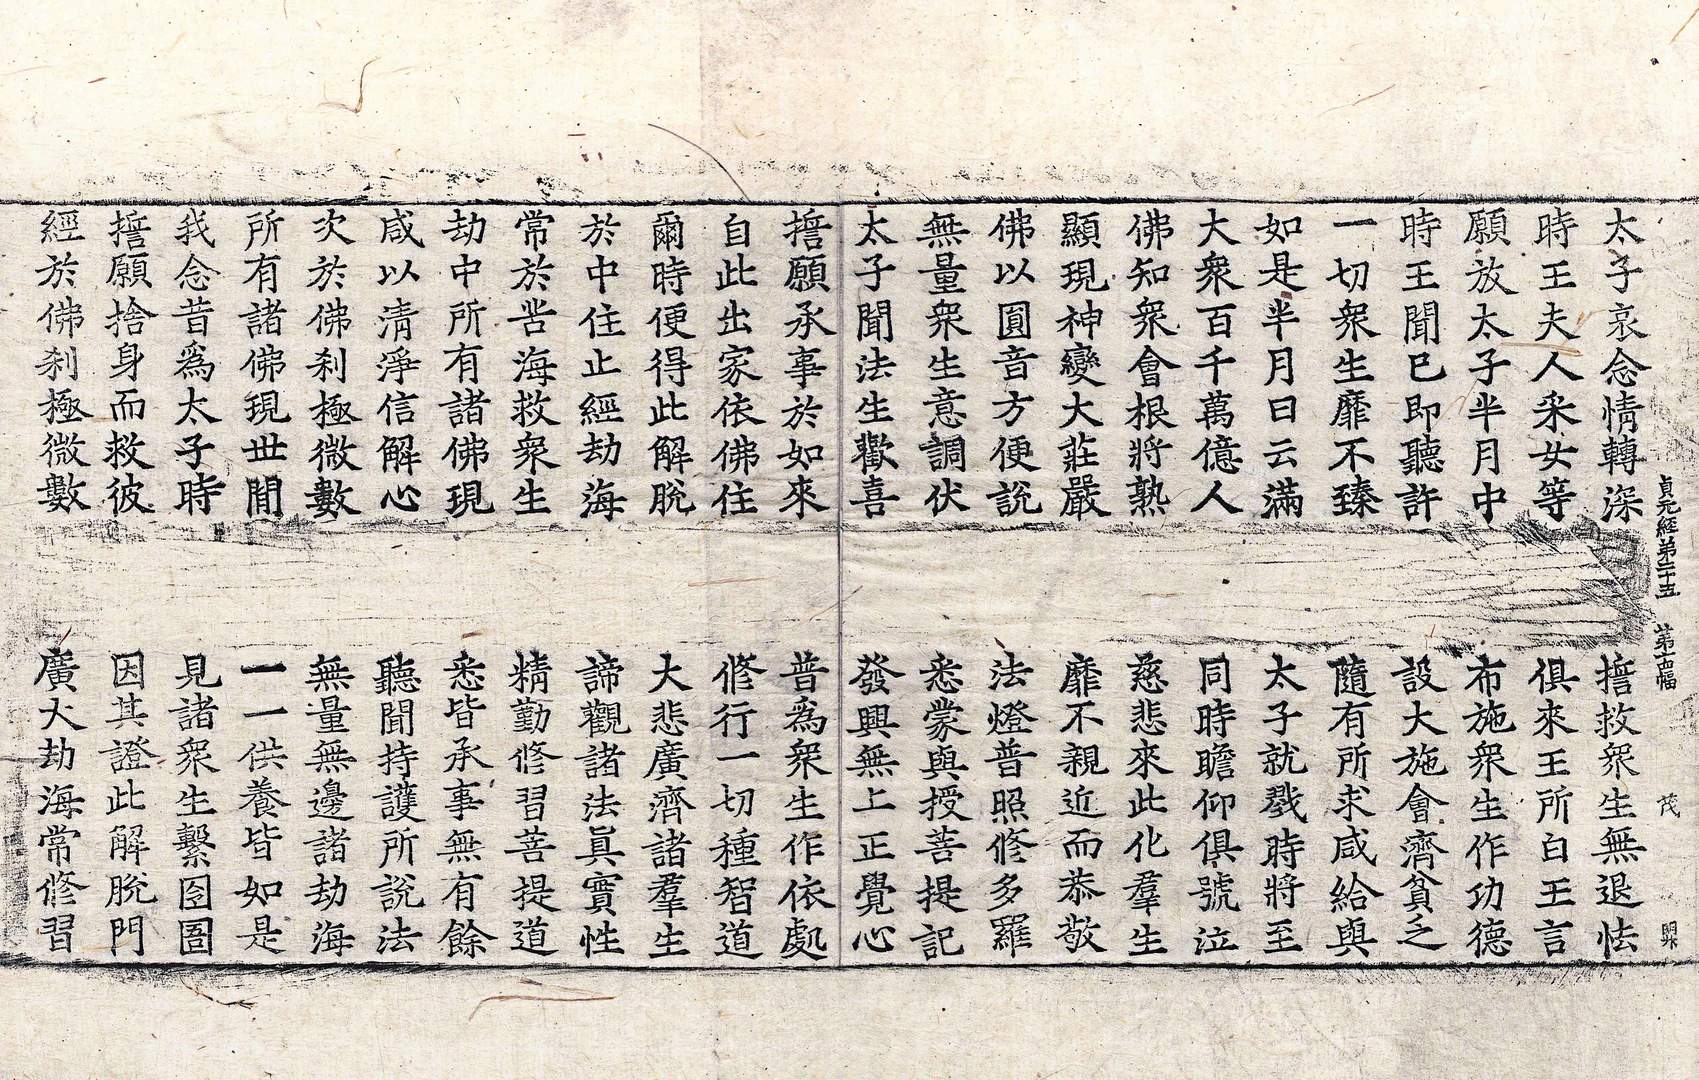 貞元經第二十五　茂
太子哀念情轉深　誓救衆生無退怯
時王夫人采女等　俱來王所白王言
願放太子半月中　布施衆生作功德
時王聞已即聽許　設大施會濟貧乏
一切衆生靡不臻　隨有所求咸給與
如是半月日云滿　太子就戮時將至
大衆百千萬億人　同時瞻仰俱號泣
佛知衆會根將熟　慈悲來此化羣生
顯現神變大莊嚴　靡不親近而恭敬
佛以圓音方便說　法燈普照修多羅
無量衆生意調伏　悉蒙與授菩提記
太子聞法生歡喜　發興無上正覺心
誓願承事於如來　普爲衆生作依處
自此出家依佛住　修行一切種智道
爾時便得此解脫　大悲廣濟諸羣生
於中住止經劫海　諦觀諸法眞實性
常於苦海救衆生　精勤修習菩提道
劫中所有諸佛現　悉皆承事無有餘
咸以清淨信解心　聽聞持護所說法
次於佛刹極微數　無量無邊諸劫海
所有諸佛現世間　一一供養皆如是
我念昔爲太子時　見諸衆生繫囹圄
誓願捨身而救彼　因其證此解脫門
經於佛刹極微數　廣大劫海常修習